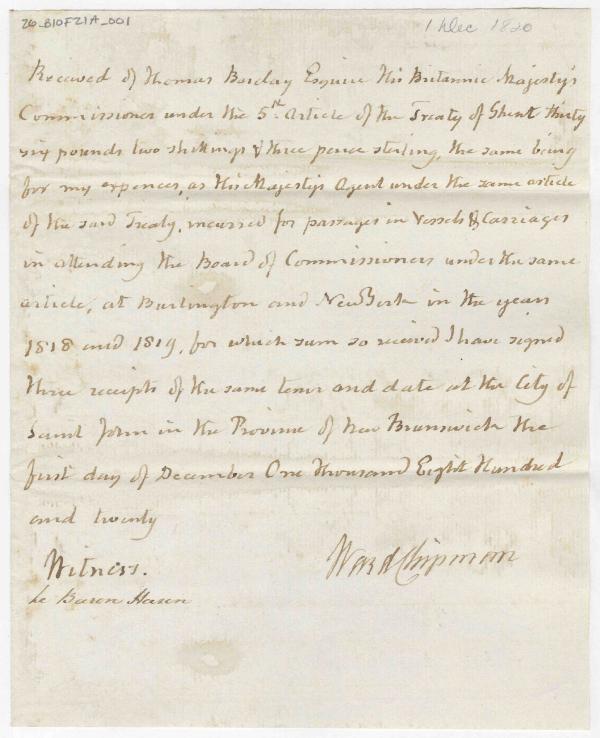 26_B10F21A_001
1 Dec 1820
Received of Thomas Barclay Esquire His Britannic Majesty's
Commissioner under the 5th Article of the Treaty of Ghent thirty
six pounds two shillings & three pence sterling, the same being
for my expences, as His Majesty's Agent under the same article
of the said Treaty, incurred for passages in Vessels & Carriages
in attending the Board of Commissioners under the same
article, at Burlington and New York in the years
1818 and 1819, for which sum so recieved I have signed
three receipts of the same tenor and date at the City of
Saint John in the Province of New Brunswick the
first day of December One thousand Eight Hundred
and twenty
Ward Chipman
Witness.
Le Baron Hazen